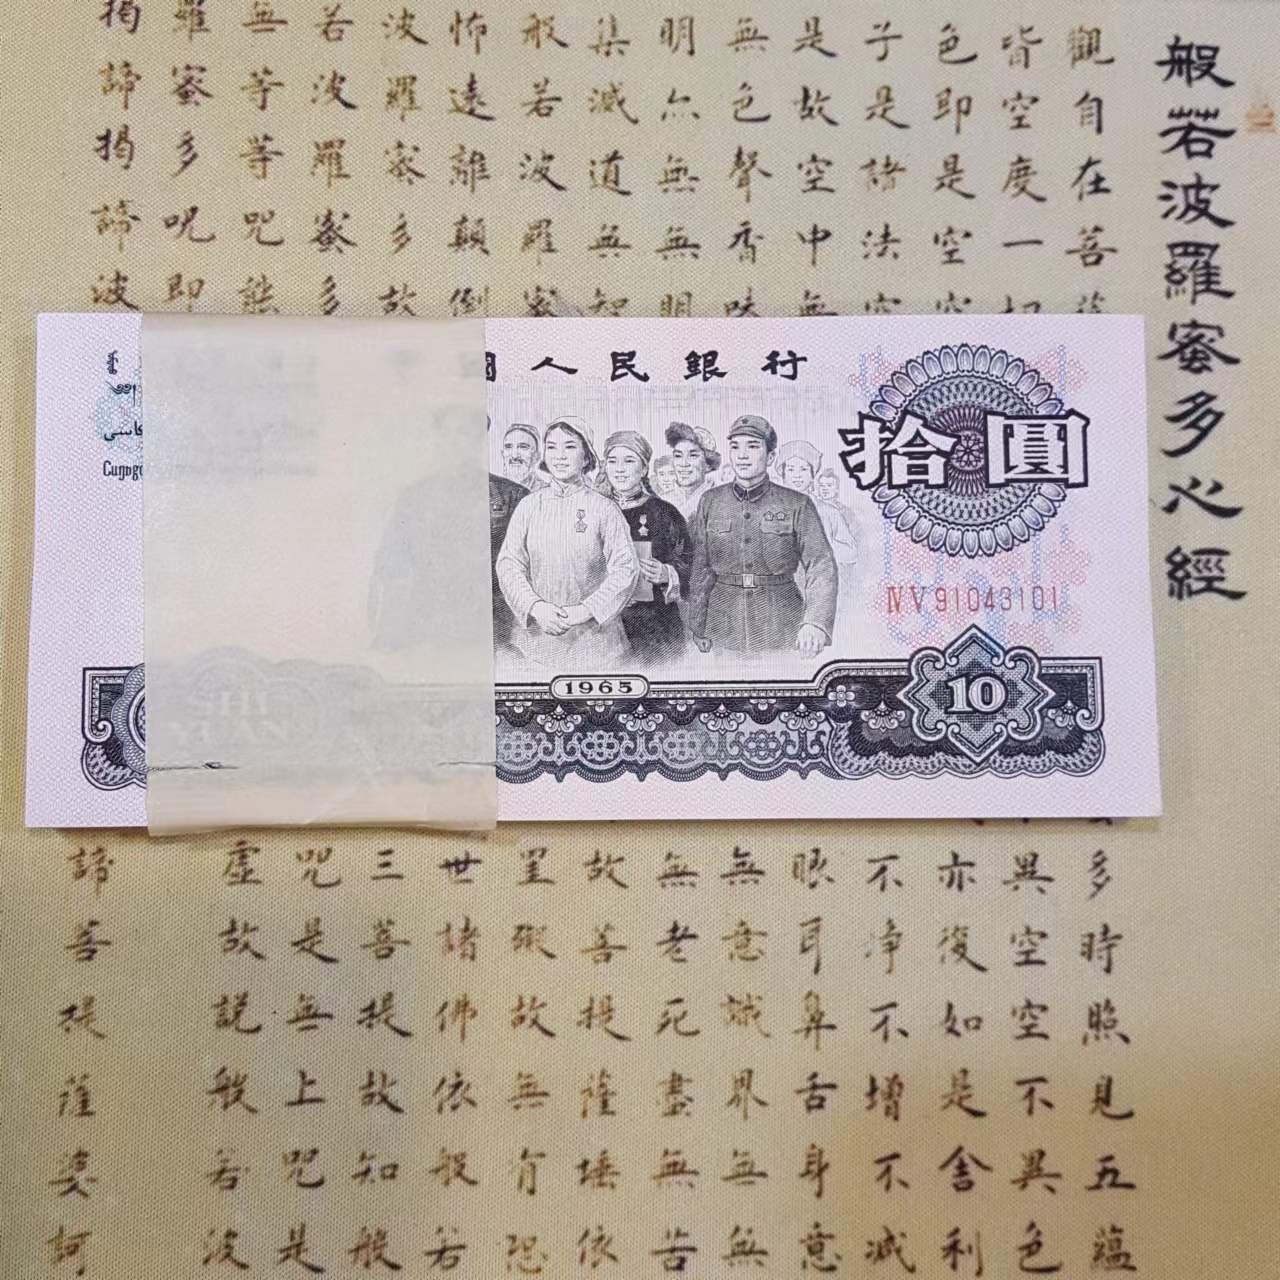 般若波羅蜜多心經
觀自在菩薩
多時照見五蘊
皆空度一切
異空空不異色
色即是空空
亦復如是舍利
子是諸法空
不淨不增不減
是故空中無
眼耳鼻舌身意
無色聲香味
無意識界無無
明亦無無明
無老死盡無苦
集滅道無智
故菩提薩埵依
般若波羅蜜
罣礙故無有恐
怖遠離顛倒
世諸佛依般若
波羅蜜多故
三菩提故知般
若波羅蜜多
咒是無上咒是
無等等咒能
虛故說般若波
羅蜜多呪即
揭諦揭諦波
諦菩提薩婆訶
國人民銀行
拾圓
ⅣⅤ91043101
1965
10